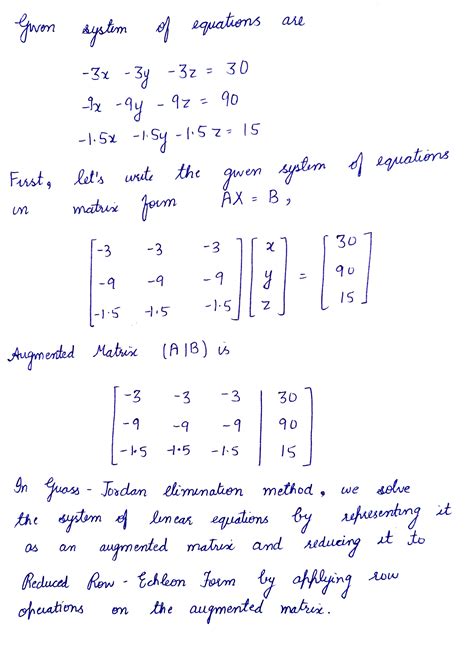 Given system of equations are
-3x - 3y - 3z = 30
-9x - 9y - 9z = 90
-1.5x - 1.5y - 1.5z = 15
First, let's write the given system of equations
in matrix form AX = B,
[-3 -3 -3] [x] [30]
[-9 -9 -9] [y] = [90]
[-1.5 -1.5 -1.5] [z] [15]
Augmented Matrix (A|B) is
[-3 -3 -3 | 30]
[-9 -9 -9 | 90]
[-1.5 -1.5 -1.5 | 15]
In Guass - Jordan elimination method, we solve
the system of linear equations by representing it
as an augmented matrix and reducing it to
Reduced Row - Echleon Form by applying row
operations on the augmented matrix.